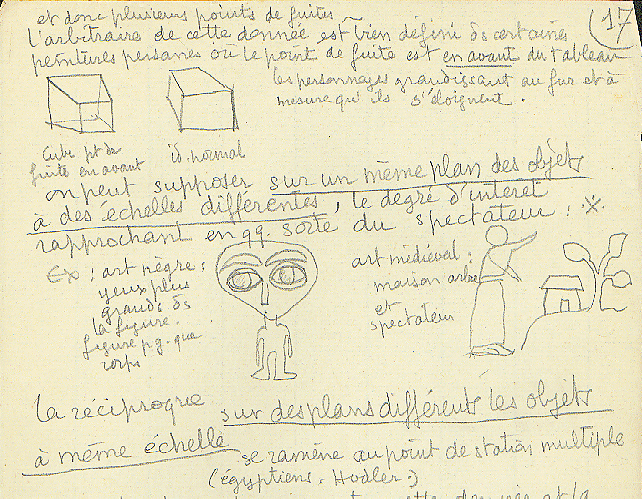 et donc plusieurs points de fuites
17
l'arbitraire de cette donnée est bien défini ds certaines
peintures persanes où le point de fuite est en avant du tableau
les personnages grandissant au fur et à
mesure qu'ils s'éloignent.
Cube pt de
fuite en avant
id. normal
on peut supposer sur un même plan des objets
à des échelles différentes, le degré d'intérêt
rapprochant en qq. sorte du spectateur : X.
Ex : art nègre :
yeux plus
grands ds
la figure.
figure p.g. que
corps
art médiéval :
maison arbre
et
spectateur
la réciproque sur des plans différents les objets
à même échelle se ramène au point de station multiple
(égyptiens. Hodler.)